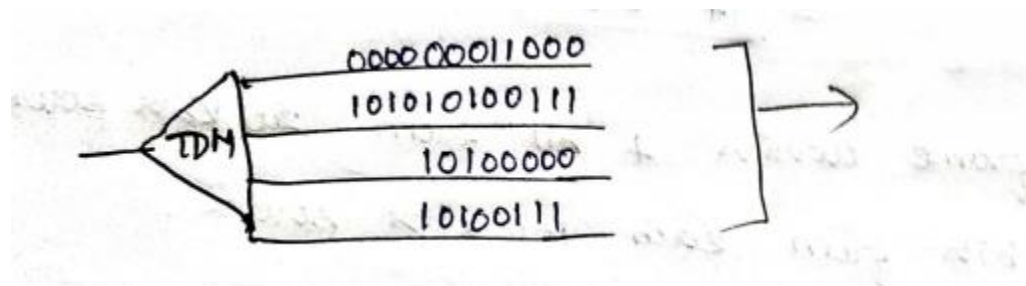 000000011000
101010100111
TDM
10100000
10100111